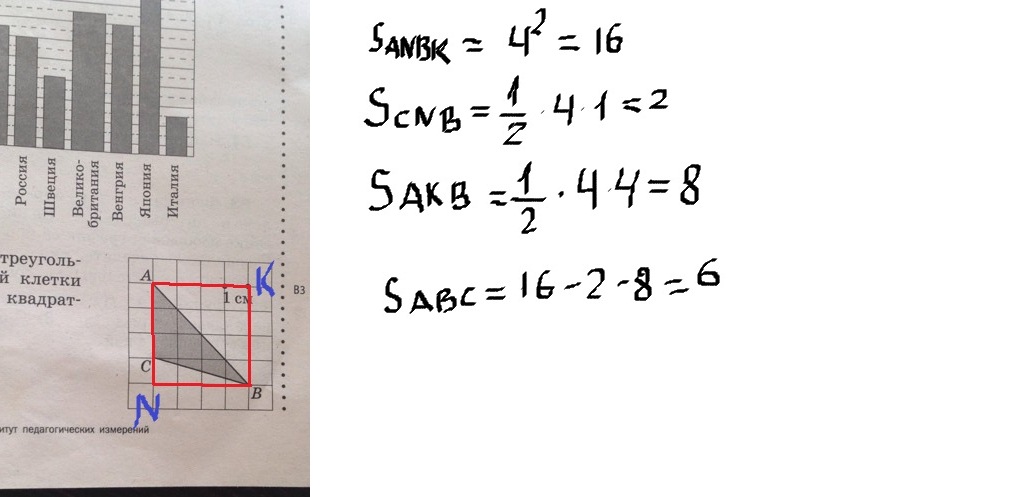 Россия
Швеция
Велико-
британия
Венгрия
Япония
Италия
треуголь-
й клетки
квадрат-
A
K
1 см
C
B
N
В3
итут педагогических измерений
S ANBK = 4² = 16
S CNB = 1/2 · 4 · 1 = 2
S AKB = 1/2 · 4 · 4 = 8
S ABC = 16 - 2 - 8 = 6